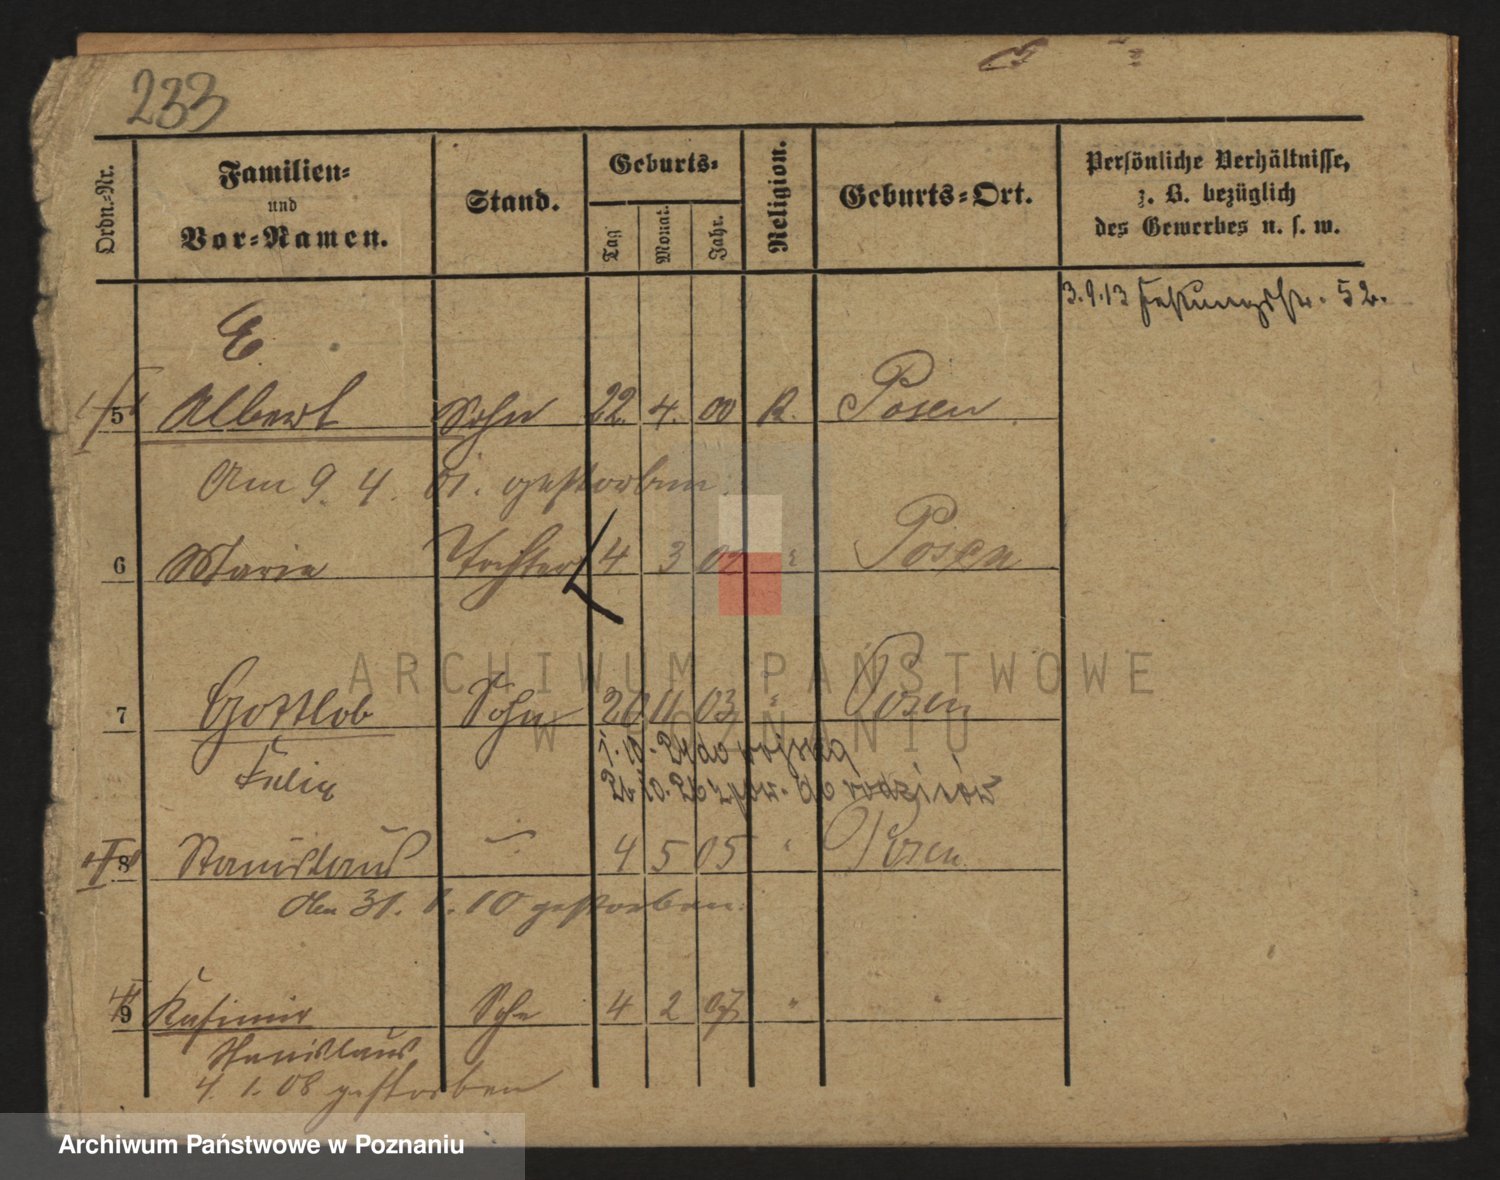 233
Ordn.-Nr. Familien- und Vor-Namen. Stand. Geburts- Tag Monat. Jahr. Religion. Geburts-Ort. Persönliche Verhältnisse, z. B. bezüglich des Gewerbes u. s. w.
3.9.13 Festungsstr. 52.
E
5 Albert Sohn 22. 4. 00 R. Posen
Am 9. 4. 01. gestorben.
6 Marie Tochter 4 3 02 " Posen
ARCHIWUM PAŃSTWOWE
7 Gottlob Sohn 20 11 03 " Posen
W POZNANIU
1.10. 24 do wojska
Felix
26 10. 26 zpow. do rodziców
8 Stanislaus — 4 5 05 " Posen
Am 31. 1. 10 gestorben.
9 Kasimir Sohn 4 2 07 " "
Stanislaus
4. 1. 08 gestorben
Archiwum Państwowe w Poznaniu